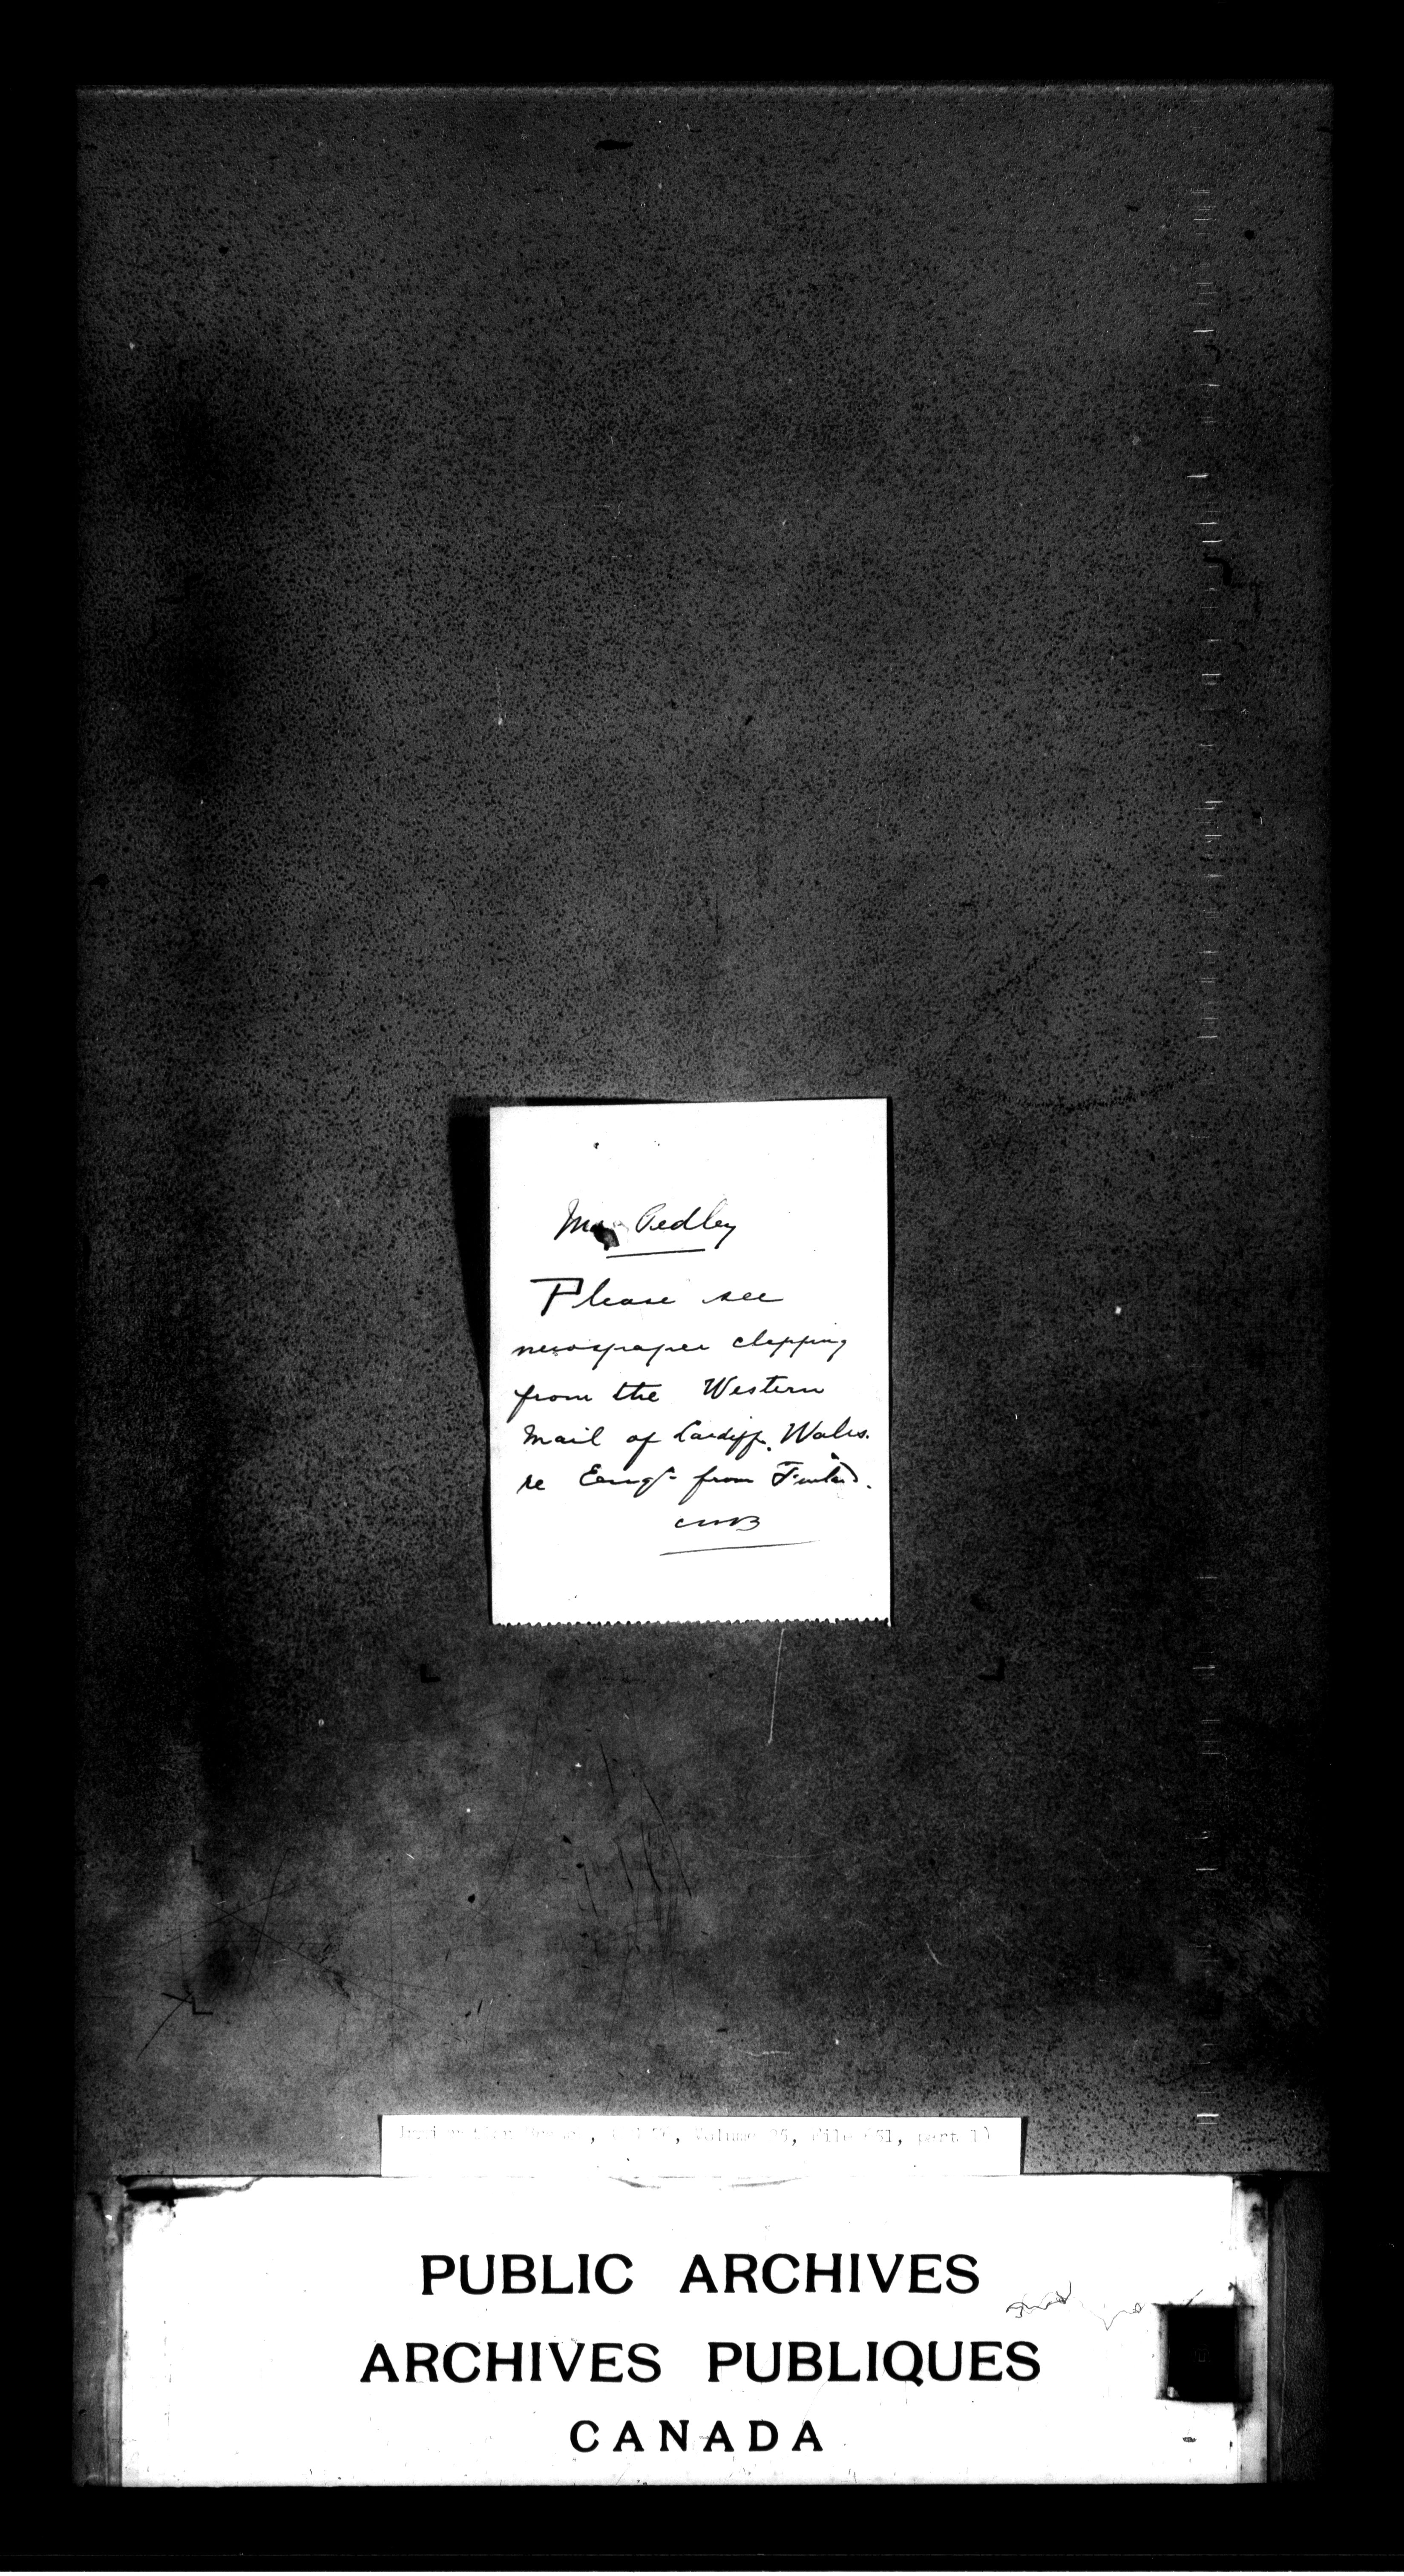 Mr. Pedley
Please see
newspaper clipping
from the Western
Mail of Cardiff, Wales.
re Emigt from Finland.
CMB
Immigration Branch, Volume 25, file 651, part 1)
PUBLIC ARCHIVES
ARCHIVES PUBLIQUES
CANADA